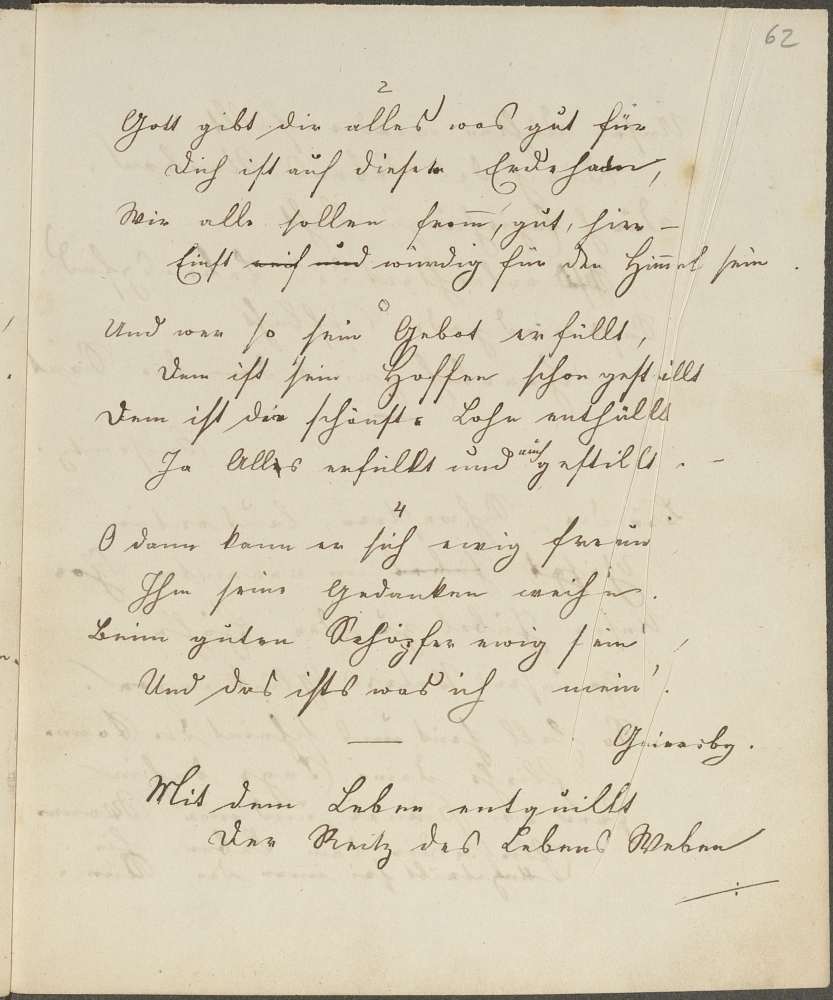 62
2
Gott gibt dir alles was gut für
Dich ist auf diesem Erdehain,
Wir alle sollen from̅, gut, hier –
Einst reif und würdig für den Him̅el sein.
Und wer so sein Gebot erfüllt,
Dem ist sein Hoffen schon gestillt
Dem ist der schönste Lohn enthüllt
Ja Alles erfüllt und auch gestillt. –
4
O dann kann er sich ewig freun
Ihm seine Gedanken weih'n.
Beim guten Schöpfer ewig sein
Und das ists was ich mein'.
Mit dem Leben entquillt
Der Reitz des Lebens Weben